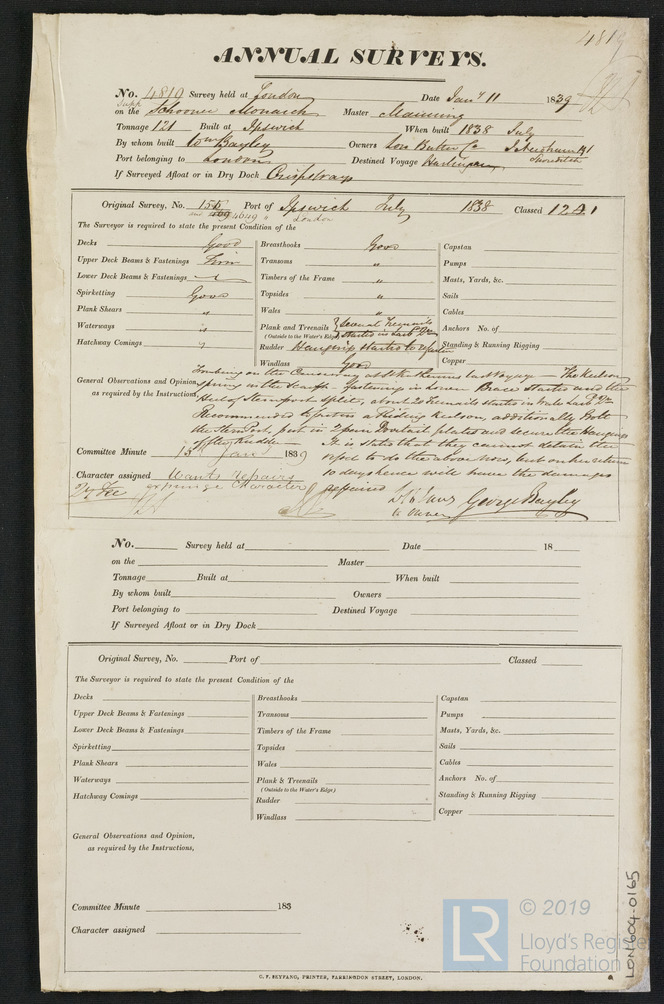 4819
ANNUAL SURVEYS.
No. 4819 Survey held at London Date Jany 11 1839
on the Schooner Monarch Master Manning
Tonnage 121 Built at Ipswich When built 1838 July
By whom built Wm Bayley Owners
Port belonging to London Destined Voyage
If Surveyed Afloat or in Dry Dock
Original Survey, No. 155 Port of Ipswich July 1838 Classed 12 A 1
4649 London
The Surveyor is required to state the present Condition of the
Decks Good
Upper Deck Beams & Fastenings Firm
Lower Deck Beams & Fastenings
Spirketting Good
Plank Shears "
Waterways "
Hatchway Comings "
Breasthooks Good
Transoms "
Timbers of the Frame "
Topsides "
Wales "
Plank and Treenails Several Treenails
(Outside to the Water's Edge) started in
Rudder Hangings started
Windlass Good
Capstan
Pumps
Masts, Yards, &c.
Sails
Cables
Anchors No. of
Standing & Running Rigging
Copper
General Observations and Opinion, as required by the Instructions,
on the last Voyage - The Keelson
sprung in the Scarph fastening in Lower Brace started and the
Heel of Sternpost split, about 20 Treenails started in
Recommended to put in a Riding Keelson, additionally Bolt
the Sternpost, put in 2 pair Dovetail plates and secure the Hangings
of the Rudder - It is stated that they cannot detain the
vessel to do the above now, but on her return
10 days hence will have the damages
repaired
Committee Minute 15 Jany 1839
Character assigned Wants repairs
expunge Character
No Fee
George Bayley
to Owner
No. Survey held at Date 18
on the Master
Tonnage Built at When built
By whom built Owners
Port belonging to Destined Voyage
If Surveyed Afloat or in Dry Dock
Original Survey, No. Port of Classed
The Surveyor is required to state the present Condition of the
Decks
Upper Deck Beams & Fastenings
Lower Deck Beams & Fastenings
Spirketting
Plank Shears
Waterways
Hatchway Comings
Breasthooks
Transoms
Timbers of the Frame
Topsides
Wales
Plank & Treenails
(Outside to the Water's Edge)
Rudder
Windlass
Capstan
Pumps
Masts, Yards, &c.
Sails
Cables
Anchors No. of
Standing & Running Rigging
Copper
General Observations and Opinion,
as required by the Instructions,
Committee Minute 183
Character assigned
C. F. SEYFANG, PRINTER, FARRINGDON STREET, LONDON.
LON 604-0165
LR © 2019
Lloyd's Register
Foundation